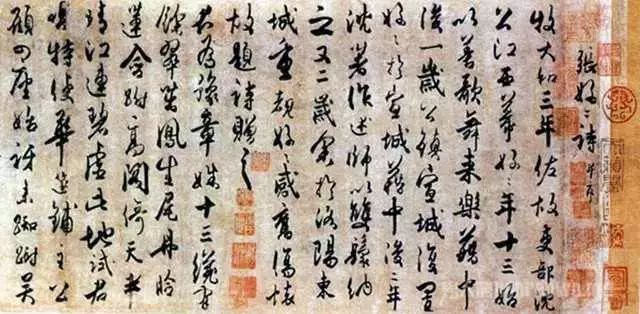 張好好詩 并序
牧大和三年佐故吏部沈
公江西幕好好年十三始
以善歌舞來樂籍中
後一歲公鎮宣城復置
好好於宣城籍中後二年
沈著作述師以雙鬟納
之又二歲余於洛陽東
城重覩好好感舊傷懷
故題詩贈之
君為豫章姝十三纔有
餘翠茁鳳生尾丹臉
蓮含跗高閣倚天半
晴江連碧虛此地試君
唱特使華筵鋪主公
顧四座始訝來踟躕吳